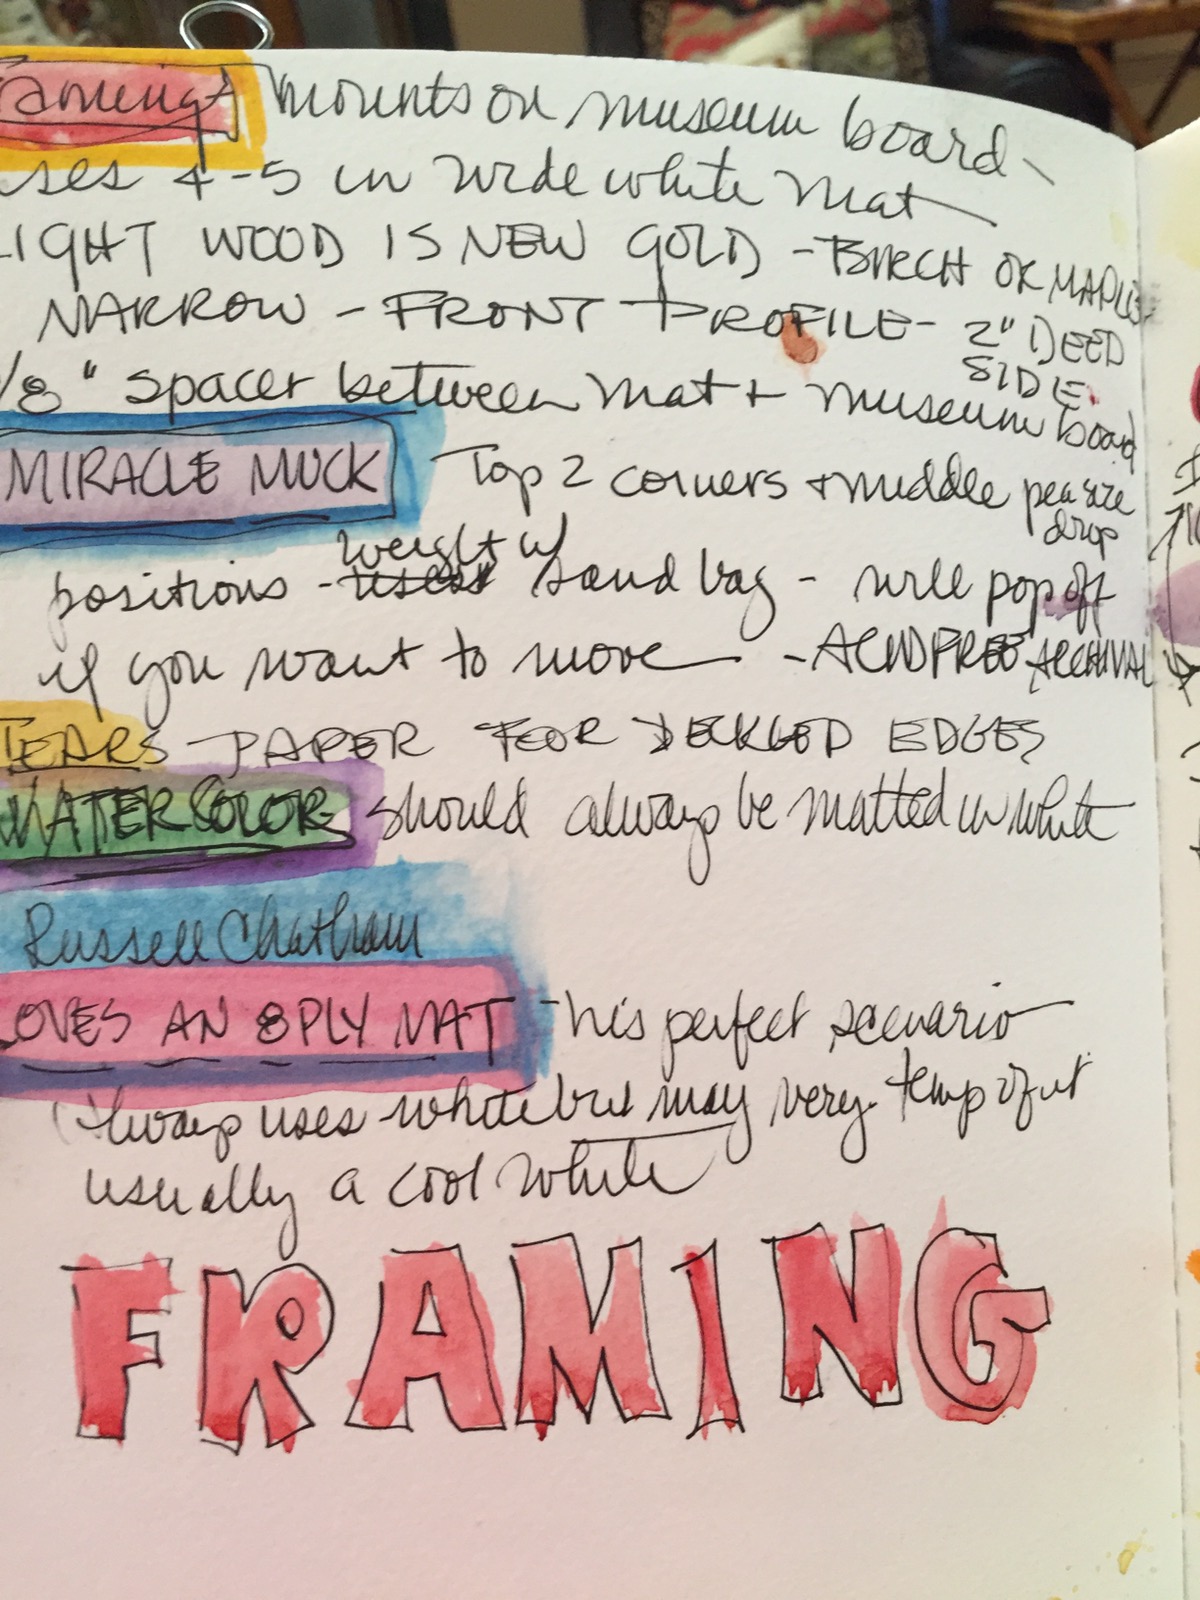 Framing mounts on museum board -
uses 4-5 in wide white mat
LIGHT WOOD IS NEW GOLD - BIRCH OR MAPLE
NARROW - FRONT PROFILE - 2" DEED SIDE
1/8" spacer between mat + museum board
MIRACLE MUCK Top 2 corners + middle pea size drop
positions - weight w/ sand bag - will pop off
if you want to move - ACID FREE ARCHIVAL
TEARS PAPER FOR DECKLED EDGES
WATERCOLOR should always be matted in white
Russell Chatham
LOVES AN 8PLY MAT - his perfect scenario
Always uses white but may very temp of it
usually a cool white
FRAMING